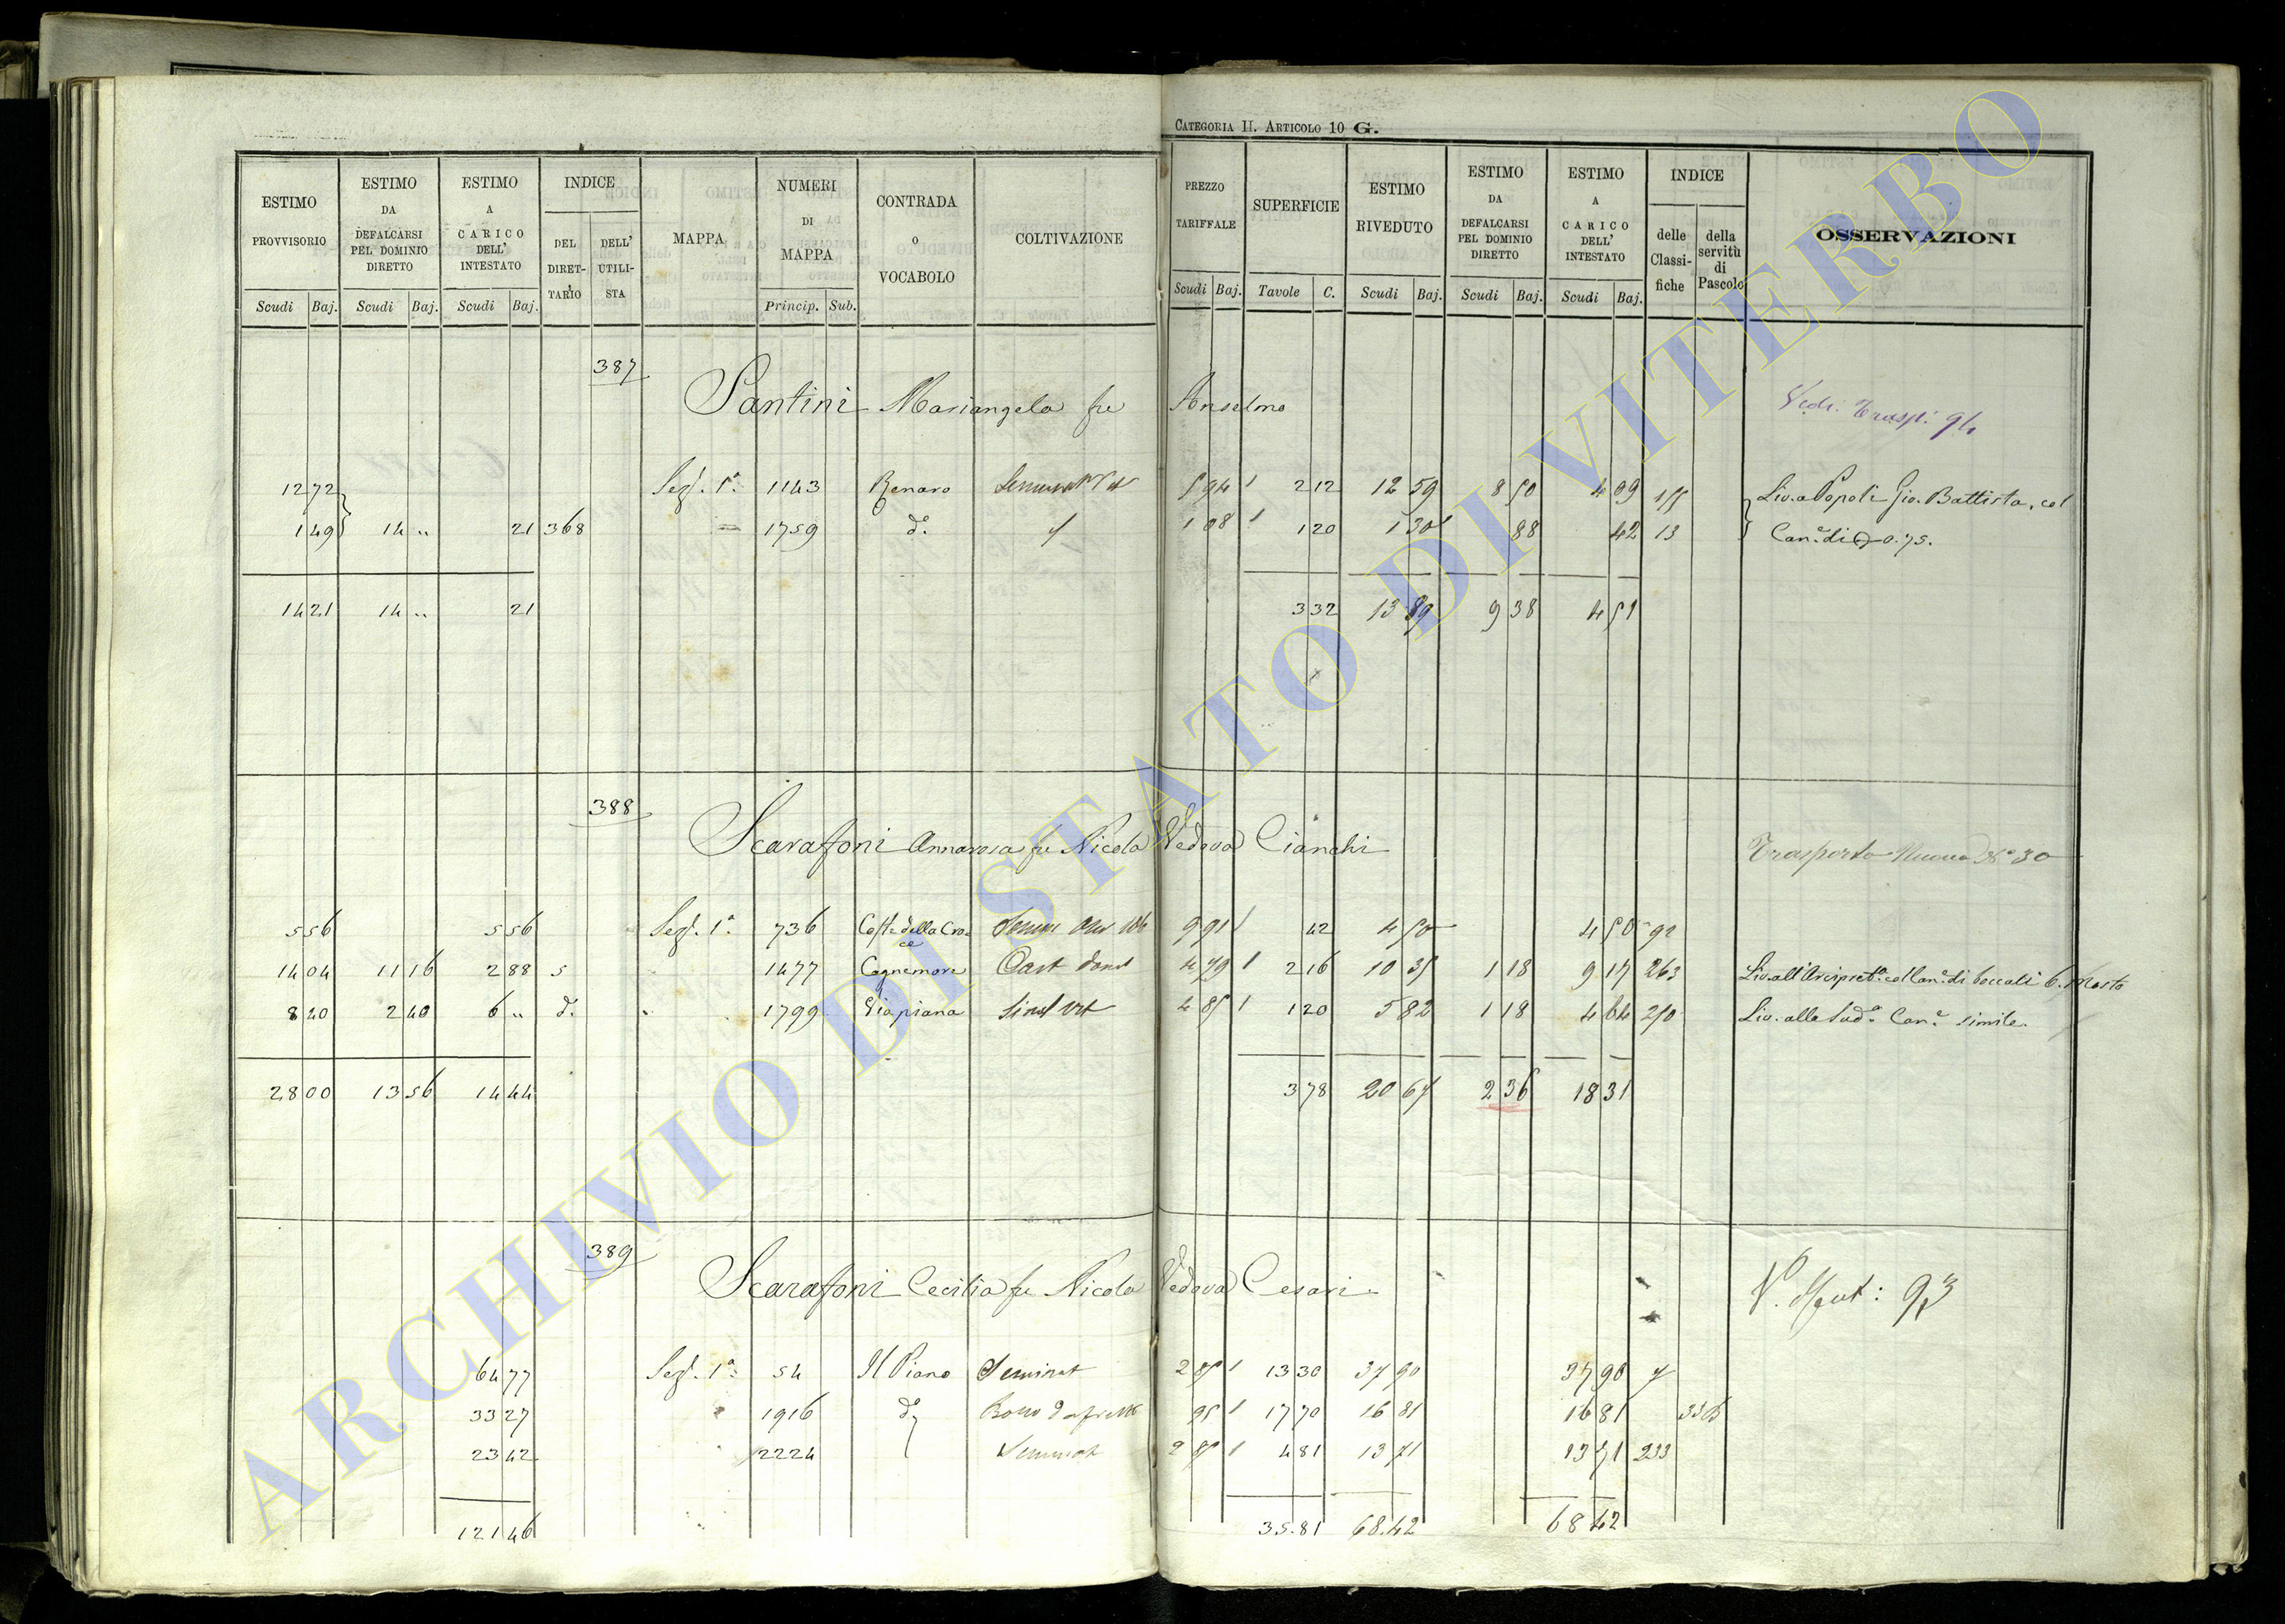 CATEGORIA II. ARTICOLO 10 G.
ESTIMO PROVVISORIO Scudi Baj.
ESTIMO DA DEFALCARSI PEL DOMINIO DIRETTO Scudi Baj.
ESTIMO A CARICO DELL' INTESTATO Scudi Baj.
INDICE DEL DIRETTARIO DELL' UTILISTA
MAPPA
NUMERI DI MAPPA Princip. Sub.
CONTRADA O VOCABOLO
COLTIVAZIONE
PREZZO TARIFFALE Scudi Baj.
SUPERFICIE Tavole C.
ESTIMO RIVEDUTO Scudi Baj.
ESTIMO DA DEFALCARSI PEL DOMINIO DIRETTO Scudi Baj.
ESTIMO A CARICO DELL' INTESTATO Scudi Baj.
INDICE delle Classifiche della servitù di Pascolo
OSSERVAZIONI
387
Santini Mariangela fu Anselmo
Vedi: Trasp:
12 72 Sez. 1ª 1143 Renaro 5 94 2 12 12 59 8 50 4 09 155 Liv. a Popoli Gio. Battista, col
1 49 14 .. 21 368 1759 dº 1 08 1 20 1 30 88 42 13 Canº di 0.75.
14 21 14 .. 21 3 32 13 89 9 38 4 51
388
Scarafoni Annarosa fu Nicola Vedova Cianchi
Trasporto Nuovo Nº 30
5 56 5 56 Sez. 1ª 736 Coste della Croce 9 91 42 4 50 4 50 92
14 04 11 16 2 88 5 1477 Cagnemore 4 79 2 16 10 35 1 18 9 17 263 Liv. all'Arcipretª col Canº di boccali 6. Mosto
8 40 2 40 6 .. dº 1799 Viapiana 4 85 1 20 5 82 1 18 4 64 250 Liv. alla Sudª Canº simile.
28 00 13 56 14 44 3 78 20 67 2 36 18 31
389
Scarafoni Cecilia fu Nicola Vedova Cesari
64 77 Sez. 1ª 54 Il Piano Seminat 2 85 13 30 37 90 37 90 7
33 27 1916 dº 95 17 70 16 81 16 81
23 42 2224 Seminat 2 85 4 81 13 71 13 71 233
121 46 35.81 68.42 68 42
ARCHIVIO DI STATO DI VITERBO